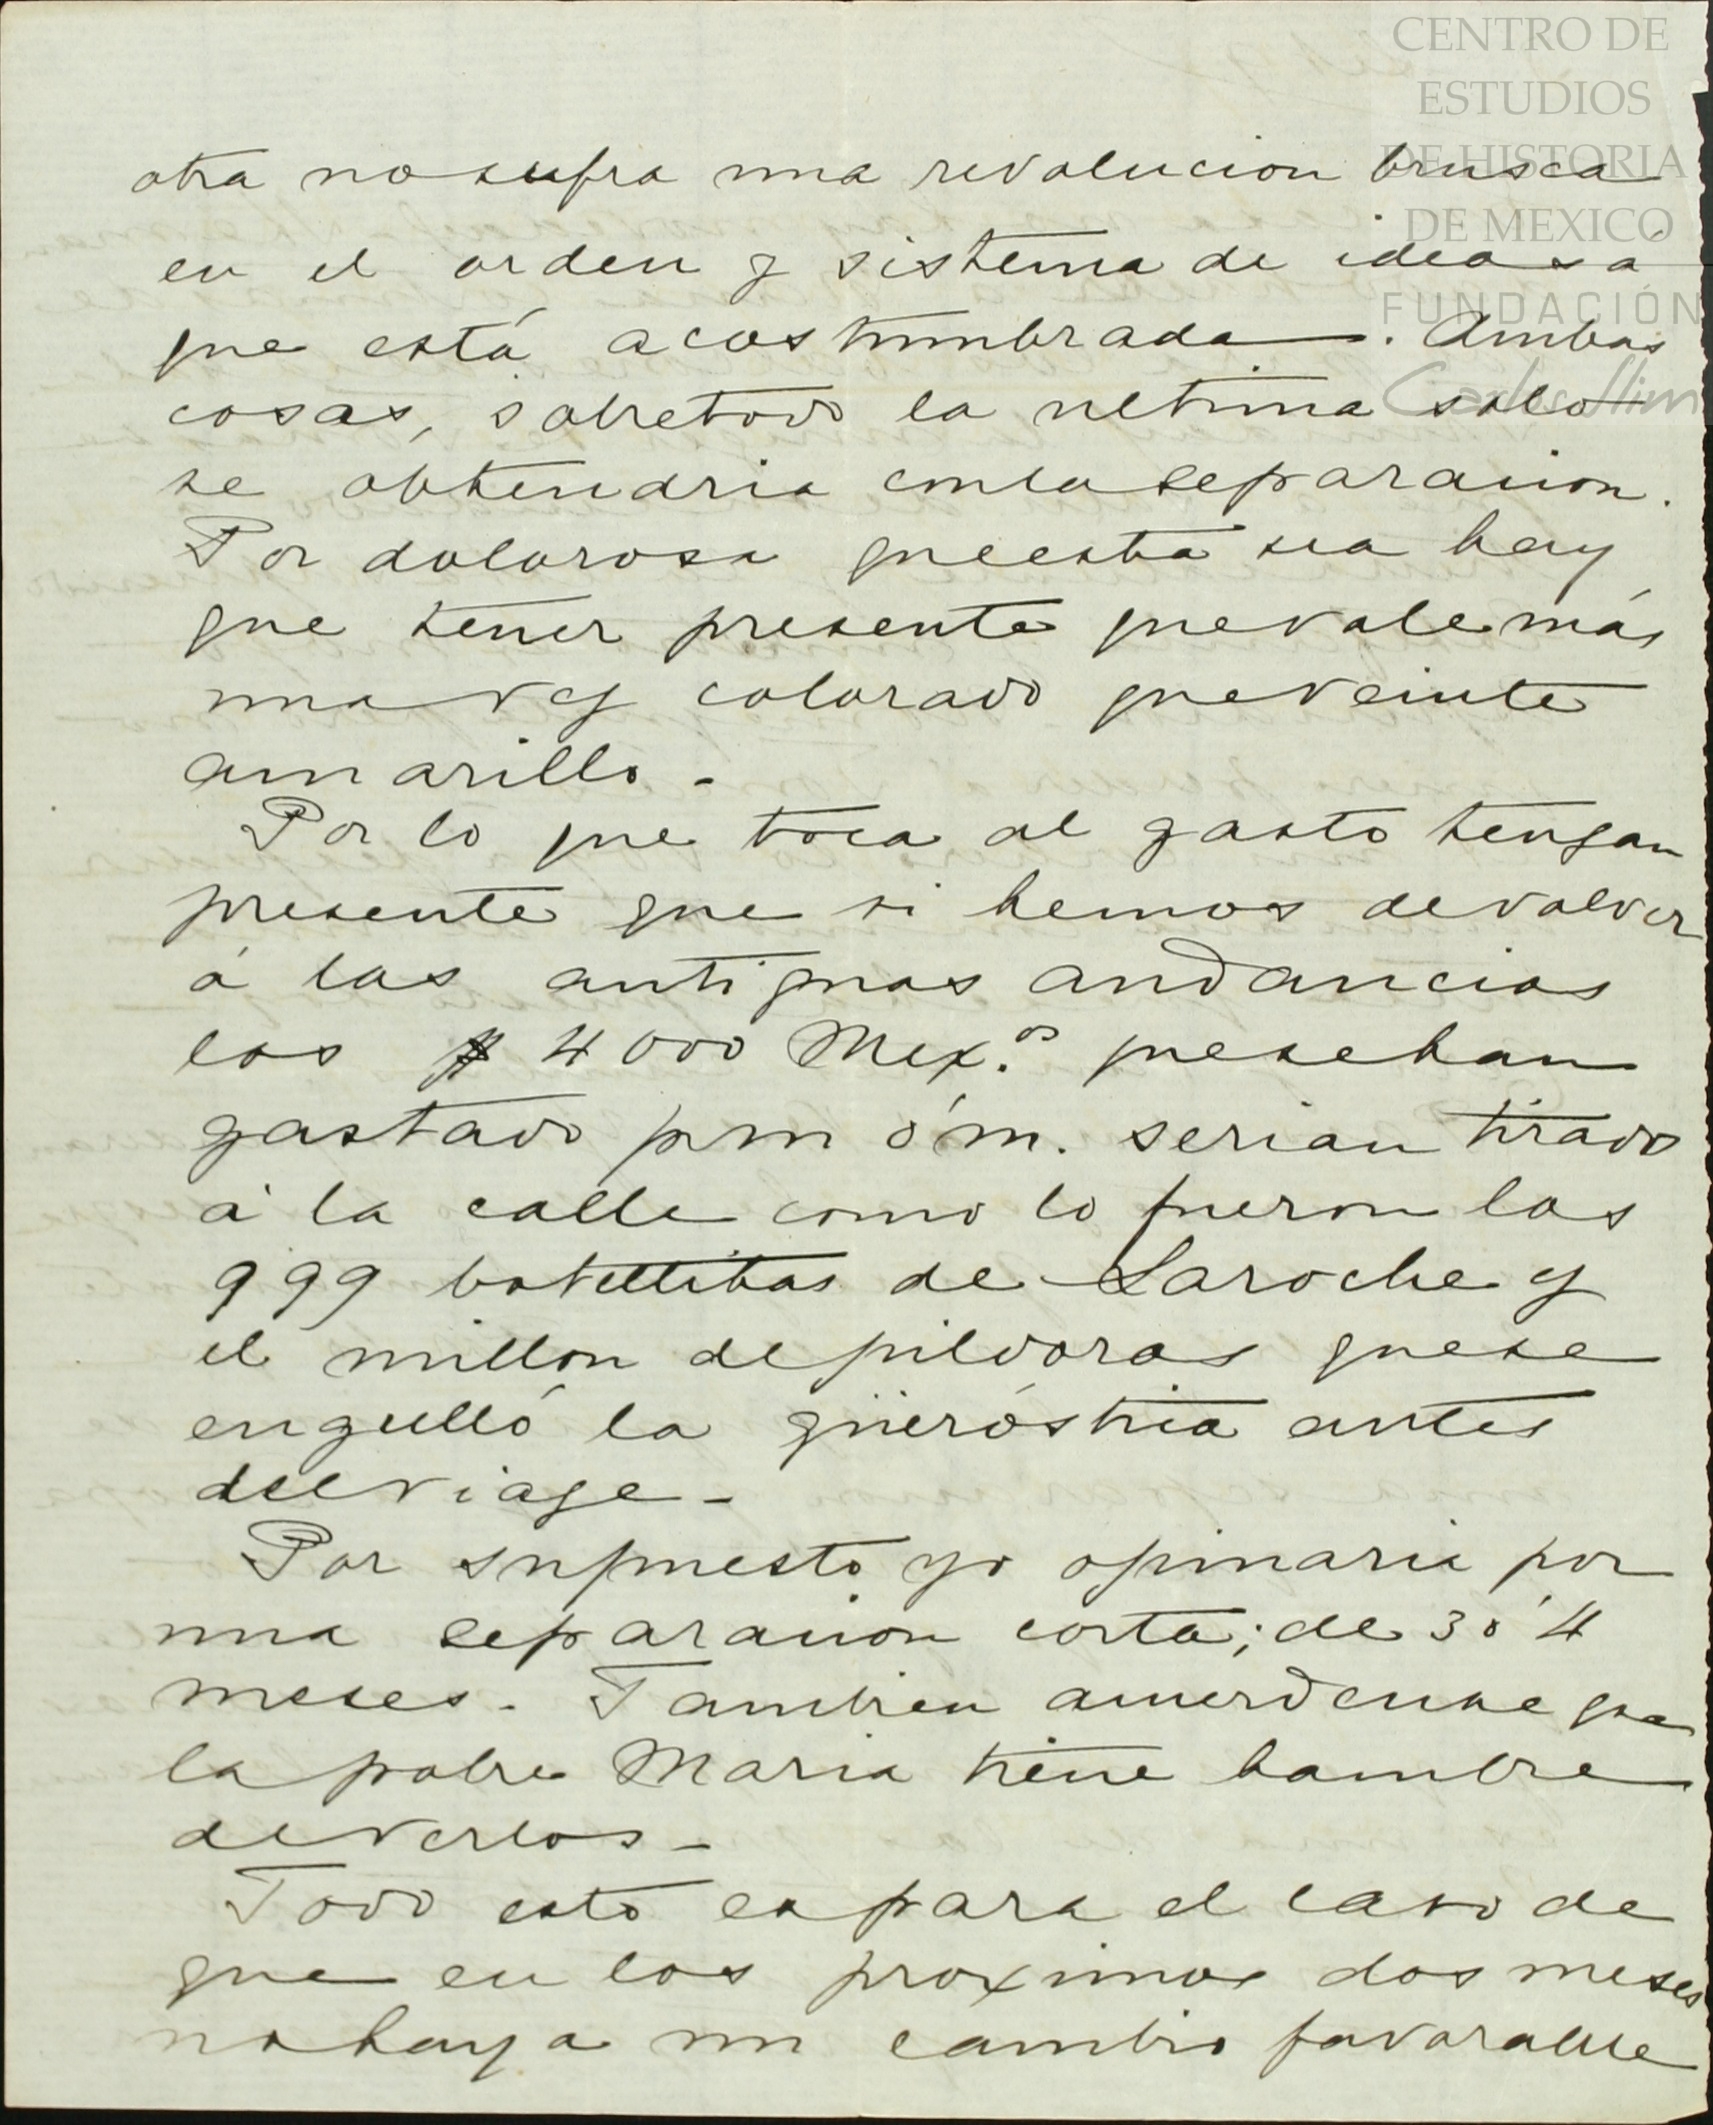 CENTRO DE
ESTUDIOS
DE HISTORIA
DE MEXICO
FUNDACIÓN
Carlos Slim
otra no sufra una revolucion brusca
en el orden y sistema de ideas á
que está acostumbrada. Ambas
cosas, sobretodo la ultima solo
se obtendria con la separacion.
Por dolorosa que esta sea hay
que tener presente que vale más
una vez colorado que veinte
amarillo.
Por lo que toca al gasto tengan
presente que si hemos de volver
á las antiguas andancias
los $4000 Mex.os que se han
gastado p m ó m. serian tirados
á la calle como lo fueron las
999 botellitas de Laroche y
el millon de pildoras que se
engulló la güeróstria antes
del viage.
Por supuesto yo opinaria por
una separacion corta; de 3 ó 4
meses. Tambien acuerdense que
la pobre Maria tiene hambre
de verlos.
Todo esto es para el caso de
que en los proximos dos meses
no haya un cambio favorable